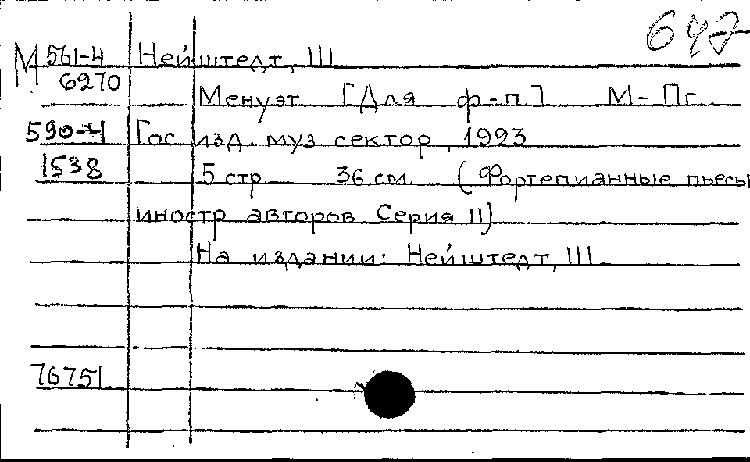 647
М 561-4 Нейштедт, Ш
6270
Менуэт [Для ф-п.] М-Пг.
590-4 Гос. изд. муз сектор, 1923
1538 5 стр 36 см (Фортепианные пьесы
иностр авторов Серия II)
На издании: Нейштедт, Ш
76751